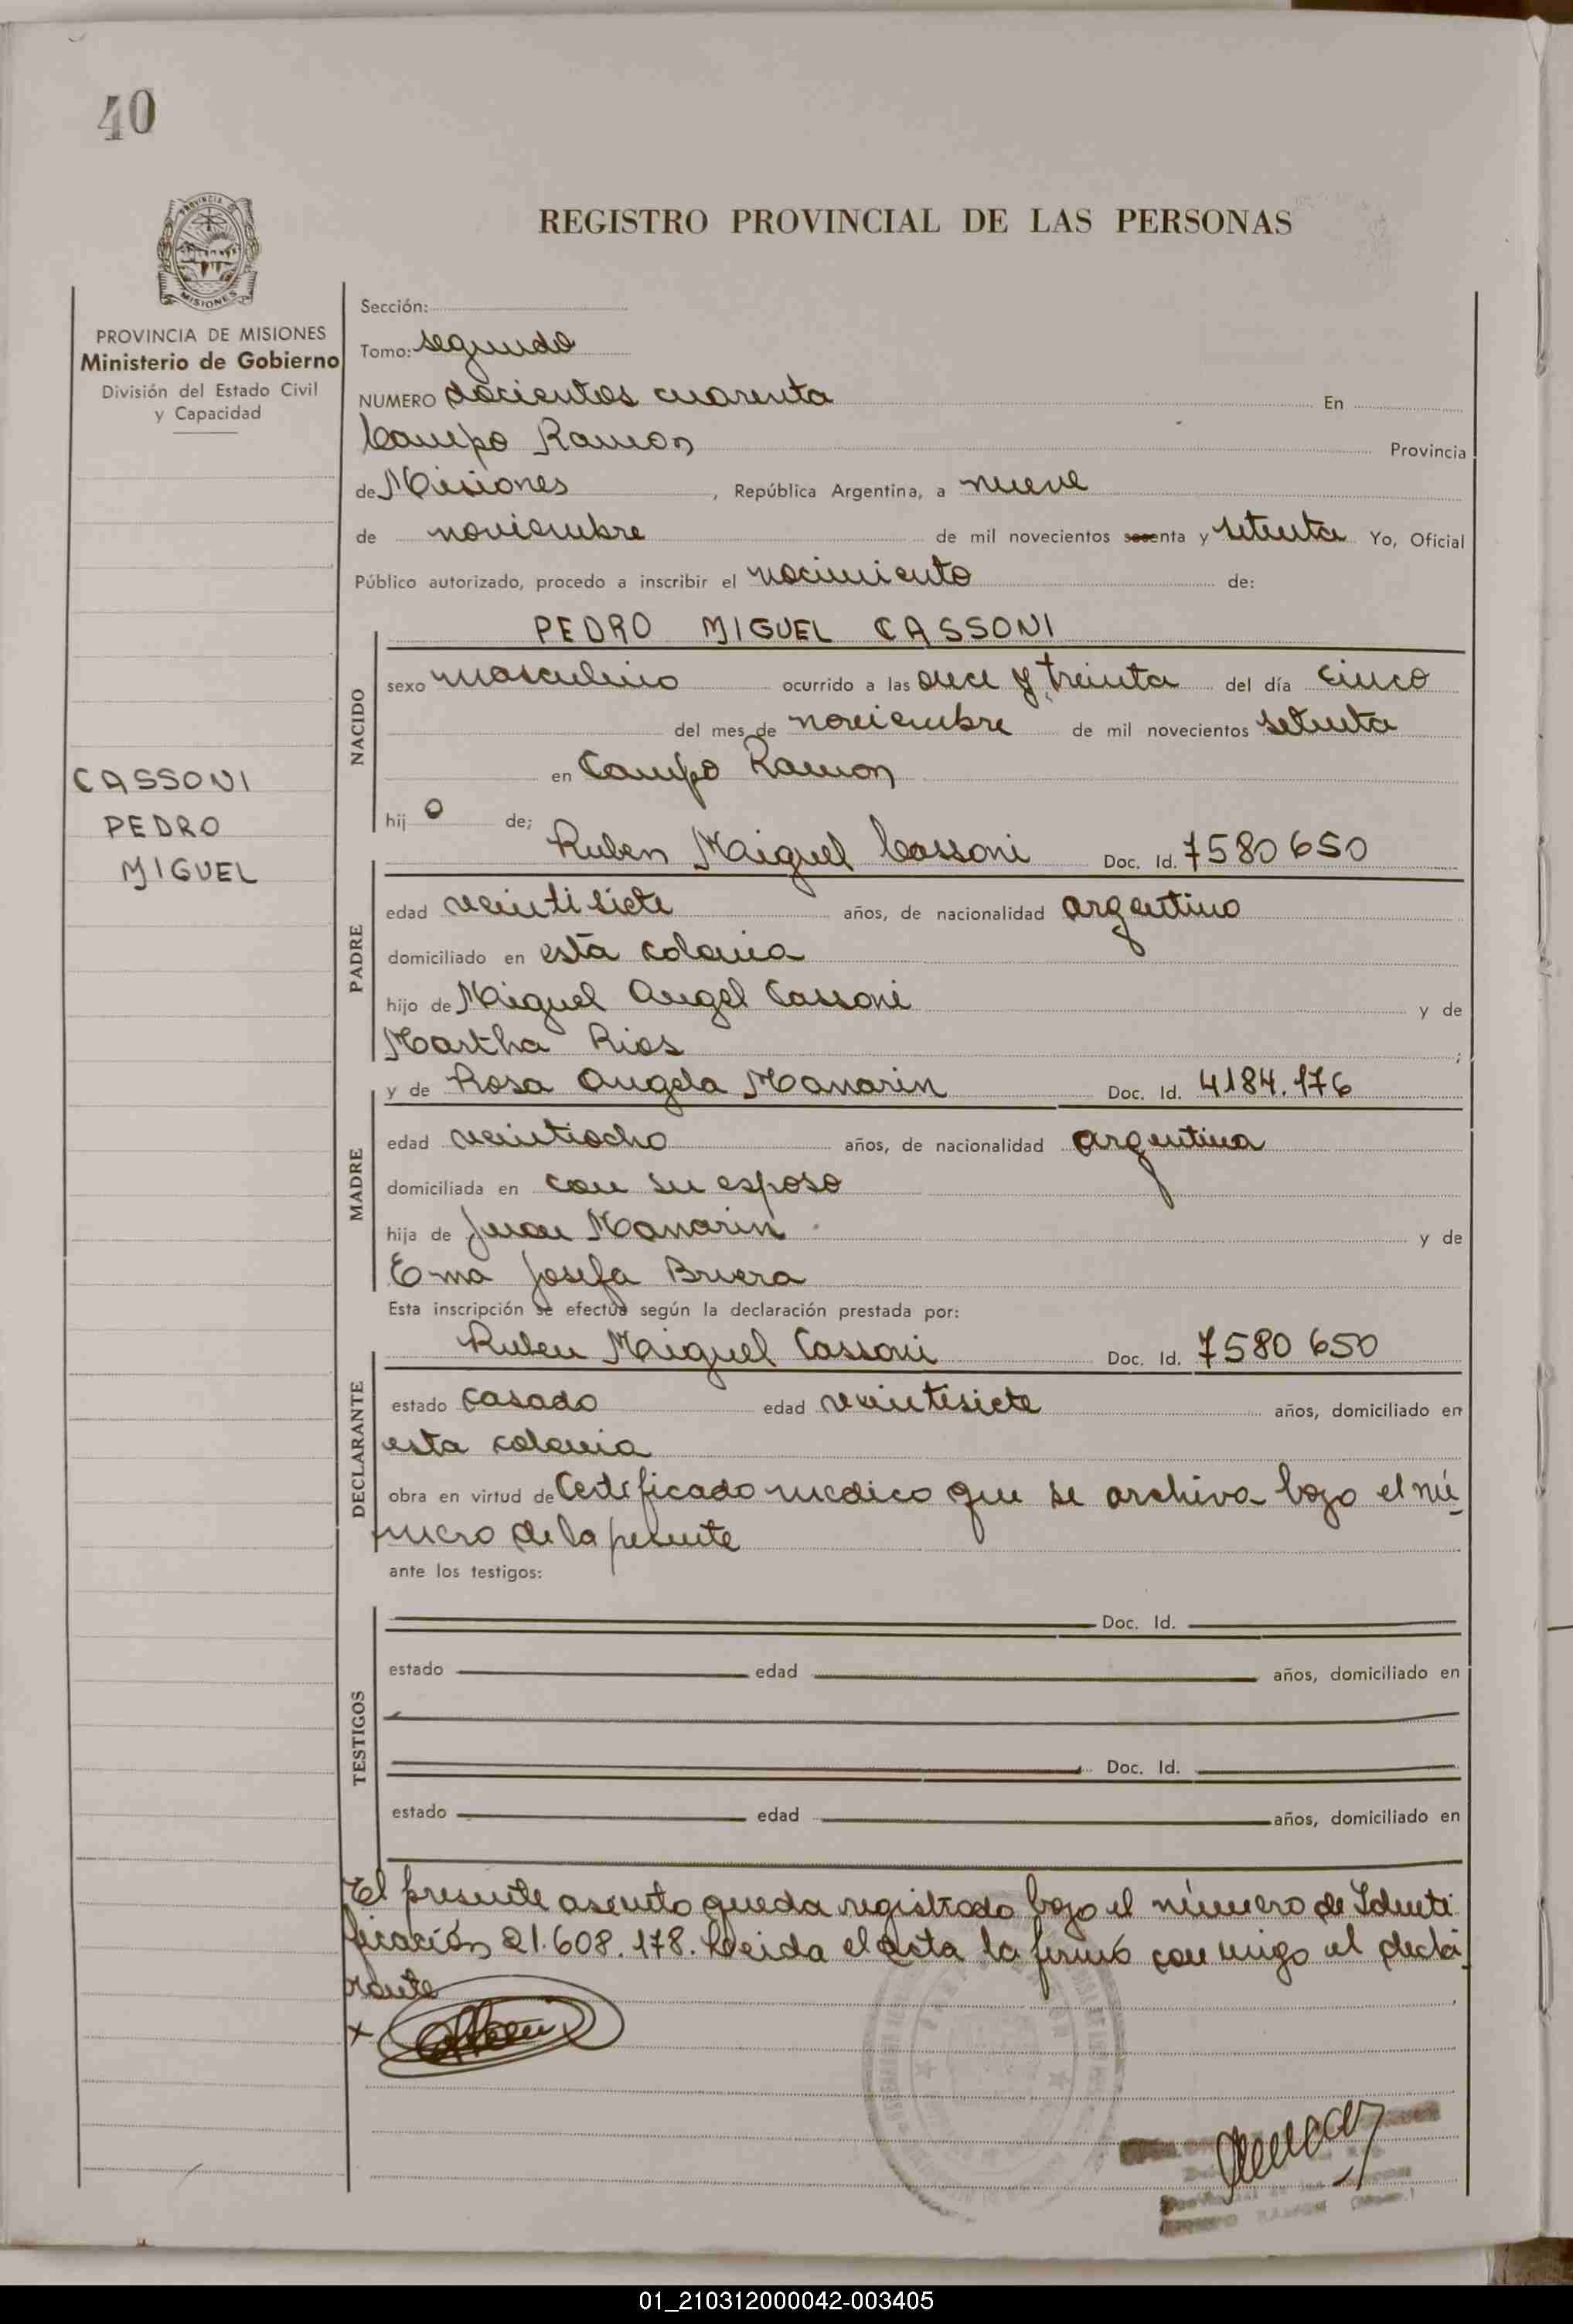 40
REGISTRO PROVINCIAL DE LAS PERSONAS
PROVINCIA
MISIONES
PROVINCIA DE MISIONES
Ministerio de Gobierno
División del Estado Civil
y Capacidad
Sección:
Tomo: segundo
NUMERO docientos cuarenta En
Campo Ramon Provincia
de Misiones, República Argentina, a nueve
de noviembre de mil novecientos sesenta y setenta Yo, Oficial
Público autorizado, procedo a inscribir el nacimiento de:
NACIDO
PEDRO MIGUEL CASSONI
sexo masculino ocurrido a las once y treinta del día cinco
del mes de noviembre de mil novecientos setenta
en Campo Ramon
hij o de;
CASSONI
PEDRO
MIGUEL
PADRE
Ruben Miguel Cassoni Doc. Id. 7580650
edad veintisiete años, de nacionalidad argentino
domiciliado en esta colonia
hijo de Miguel Angel Cassoni y de
Martha Rios ;
MADRE
y de Rosa Angela Manarin Doc. Id. 4184.176
edad veintiocho años, de nacionalidad argentina
domiciliada en con su esposo
hija de Juan Manarin y de
Ema Josefa Bruera
Esta inscripción se efectúa según la declaración prestada por:
DECLARANTE
Ruben Miguel Cassoni Doc. Id. 7580650
estado casado edad veintisiete años, domiciliado en
esta colonia
obra en virtud de Certificado medico que se archiva bajo el nú
mero de la presente
ante los testigos:
TESTIGOS
Doc. Id.
estado edad años, domiciliado en
Doc. Id.
estado edad años, domiciliado en
El presente asiento queda registrado bajo el número de Identi
ficación 21.608.178. Leida el acta la firmó con migo el decla
rante
x
01_210312000042-003405